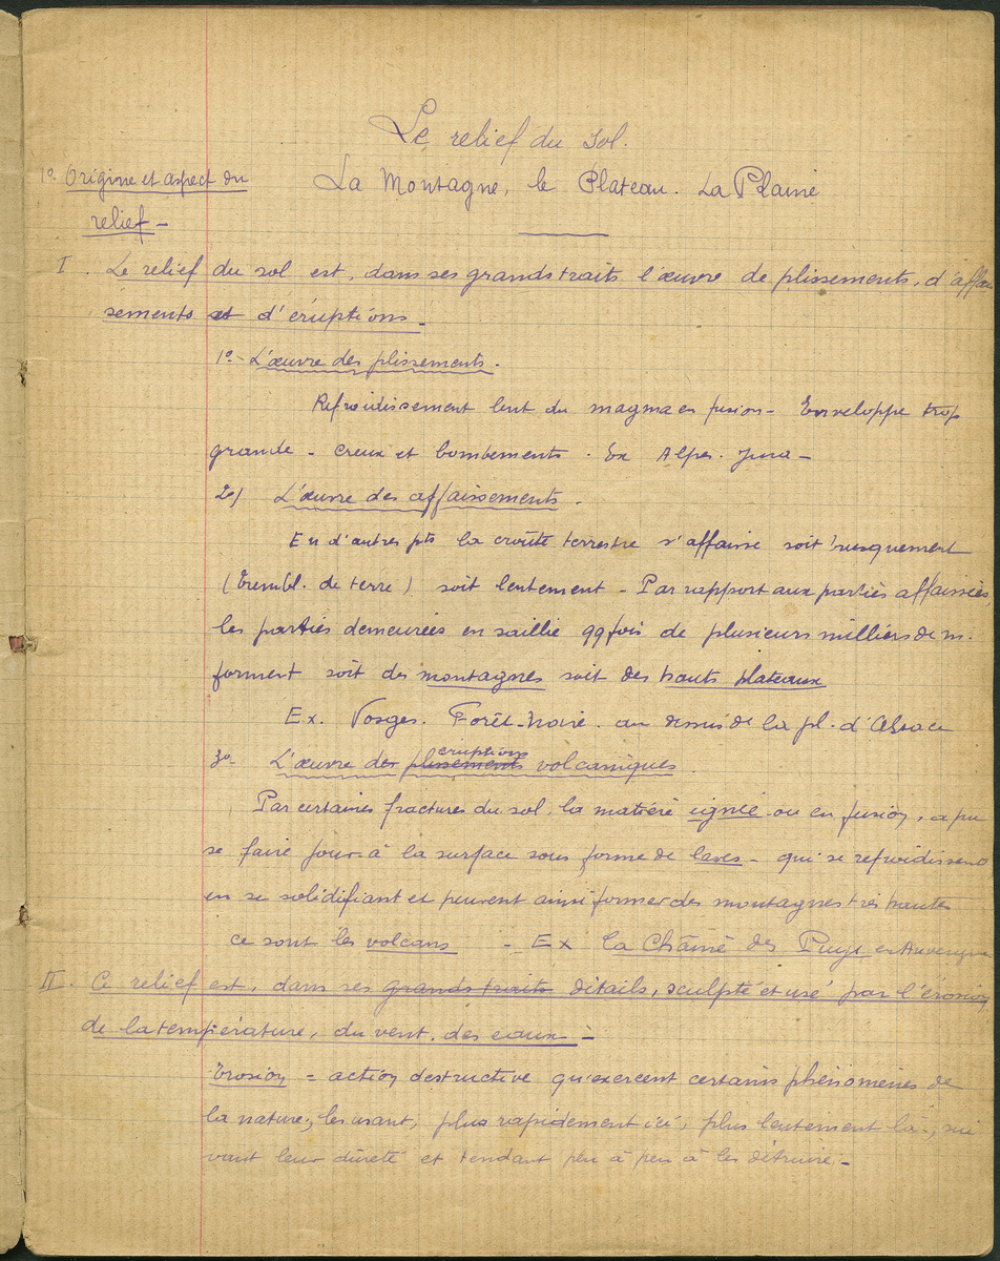 Le relief du sol.
1º Origine et aspect du
La Montagne, le Plateau. La Plaine
relief -
I. Le relief du sol est, dans ses grands traits l'œuvre de plissements, d'affais
sements et d'éruptions -
1º - L'œuvre des plissements.
Refroidissement lent du magma en fusion - Enveloppe trop
grande - creux et bombements. Ex Alpes. Jura -
2e/ L'œuvre des affaissements.
En d'autres pts la croûte terrestre s'affaisse soit brusquement
(trembl. de terre) soit lentement - Par rapport aux parties affaissées,
les parties demeurées en saillie qqfois de plusieurs milliers de m.
forment soit des montagnes soit des hauts plateaux
Ex. Vosges. Forêt-Noire. au dessus de la pl. d'Alsace
3º - L'œuvre des plissements éruptions volcaniques
Par certaines fractures du sol, la matière ignée ou en fusion, a pu
se faire jour à la surface sous forme de laves - qui se refroidissent
en se solidifiant et peuvent ainsi former des montagnes très hautes
ce sont les volcans - Ex La Chaîne des Puys en Auvergne
II. Ce relief est, dans ses grands traits détails, sculpté et usé par l'érosion,
de la température, du vent, des eaux -
Erosion = action destructive qu'exercent certains phénomènes de
la nature, les usant, plus rapidement ici, plus lentement là, sui
vant leur dureté et tendant peu à peu à les détruire -